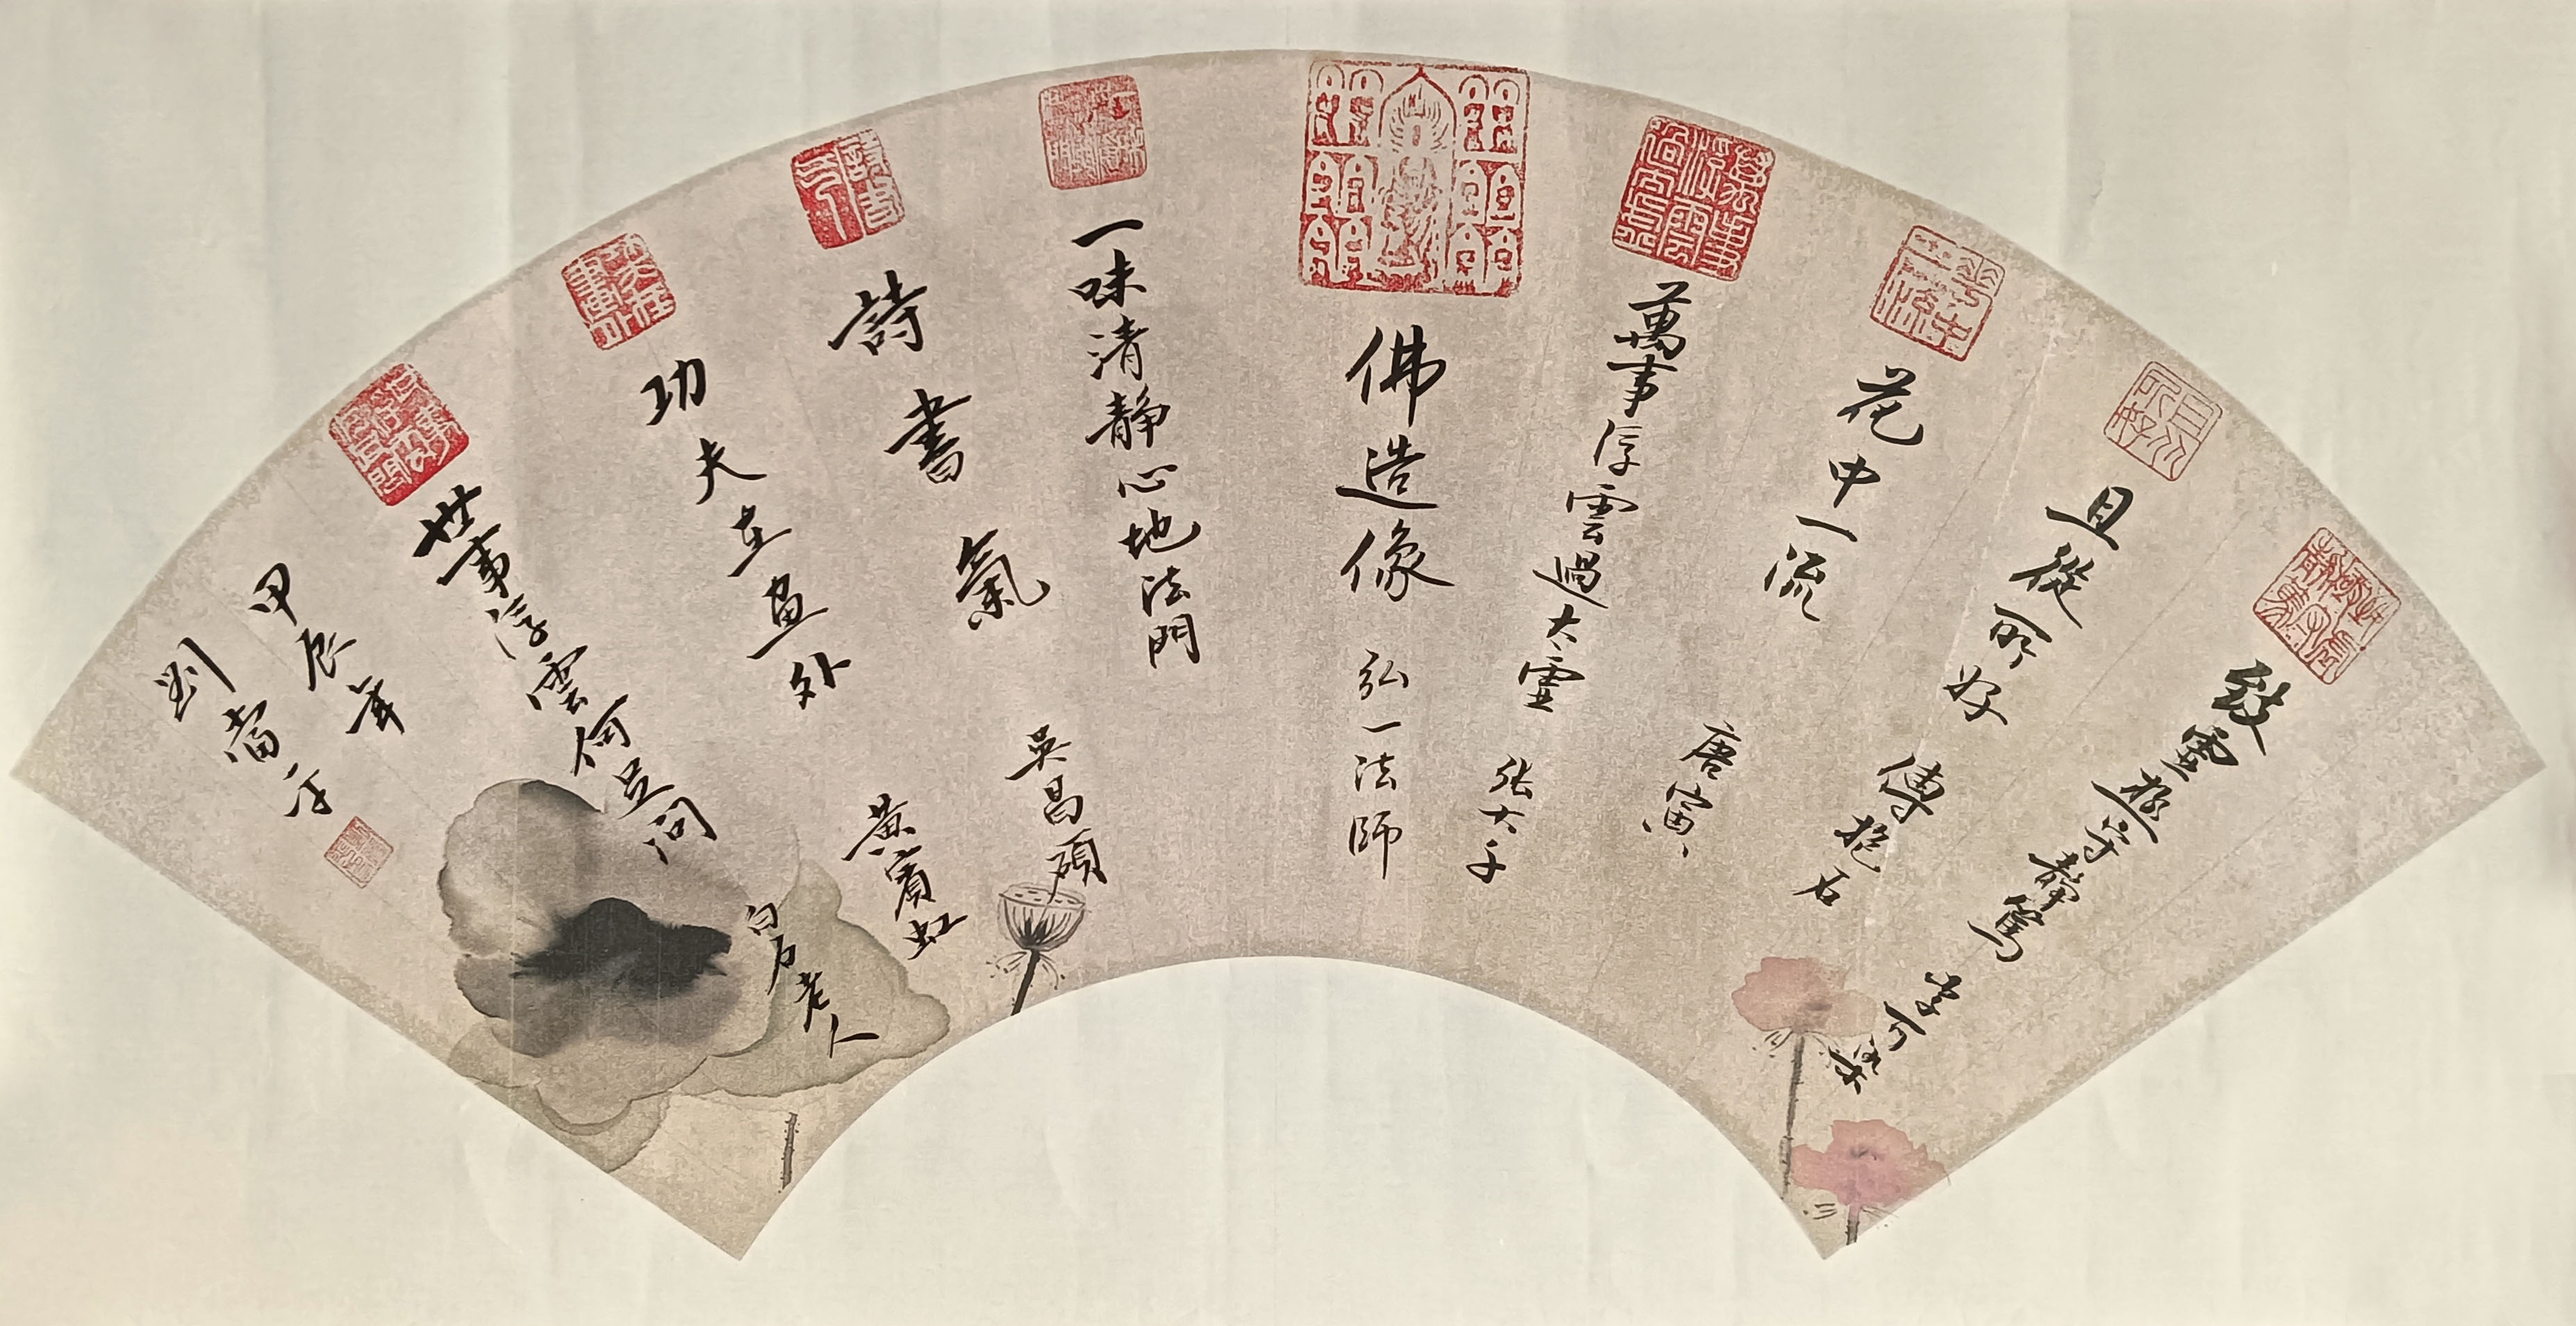 致虛極守靜篤 李可染
且從所好 傅抱石
花中一流 唐寅
萬事浮雲過太虛 張大千
佛造像 弘一法師
一味清静心地法門
詩書氣 吳昌碩
功夫在畫外 黃賓虹
世事浮雲何足問 白石老人
甲辰年
劉當平